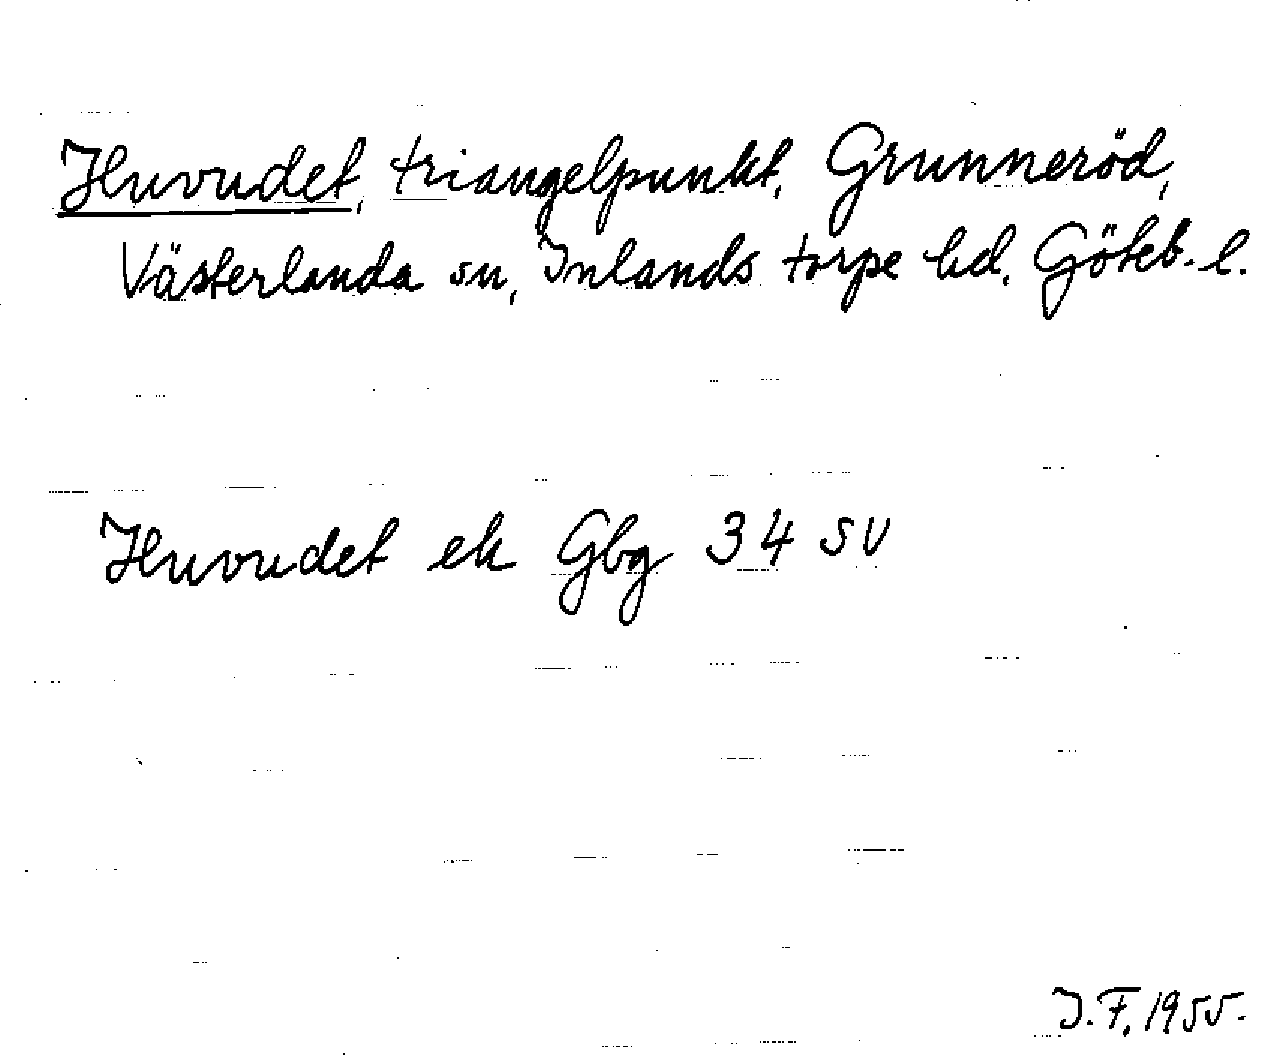 Huvudet, triangelpunkt, Grunneröd,
Västerlanda sn, Inlands torpe hd, Göteb. l.
Huvudet ek Gbg 34 SV
J.F. 1955.